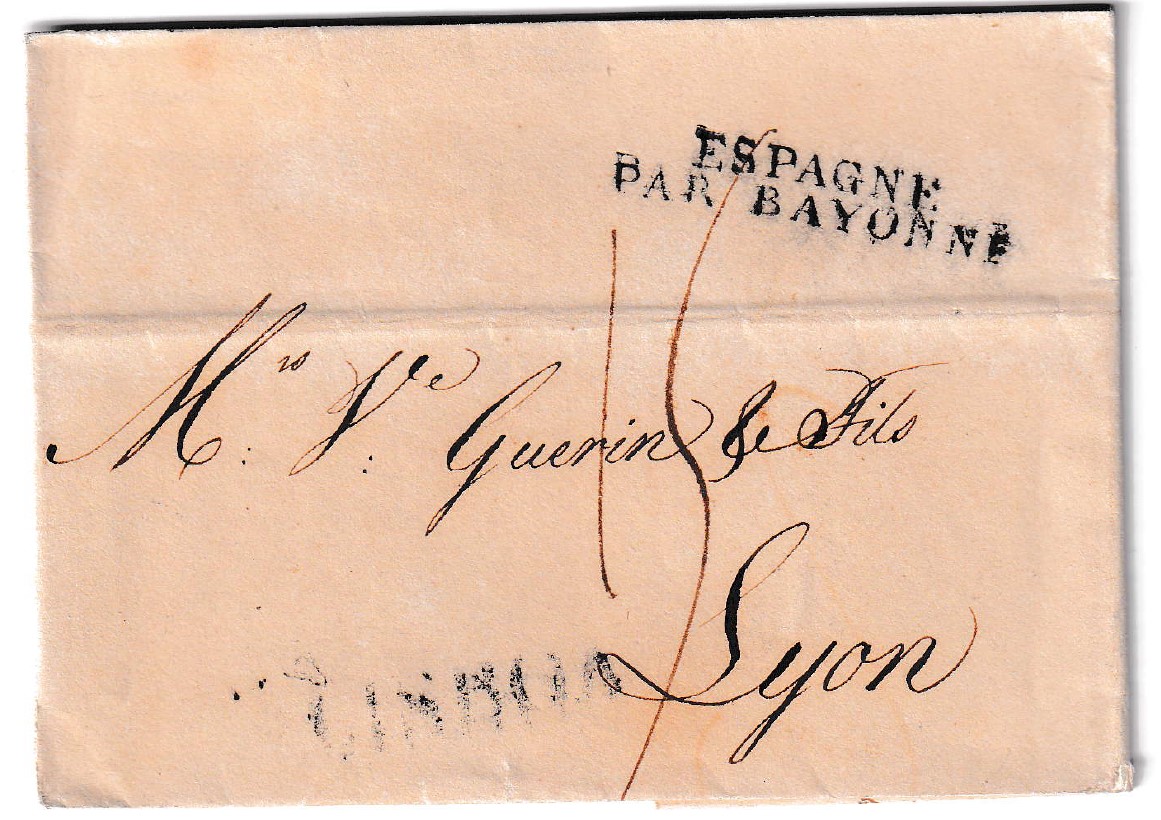 ESPAGNE
PAR BAYONNE
15
M.rs V.e Guerin & Fils
Lyon
LISBOA